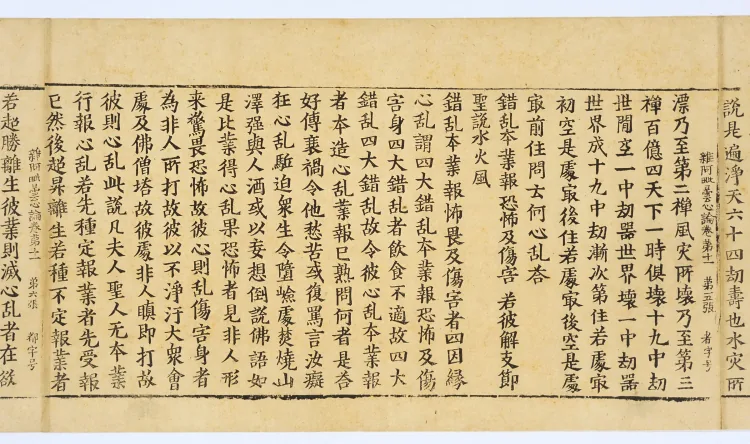 說是遍淨天六十四劫壽也水灾所
雜阿毗曇心論卷第十一 第五張 者字号
漂乃至第二禅風灾所壞乃至第三
禅百億四天下一時俱壞十九中劫
世間空一中劫器世界壞一中劫器
世界成十九中劫漸次第住若處冣
初空是處冣後住若處冣後空是處
冣前住問云何心乱荅
錯乱夲業報恐怖及傷害 若彼解支節
聖說水火風
錯乱夲業報怖畏及傷害者四因緣
心乱謂四大錯乱夲業報恐怖及傷
害身四大錯乱者飲食不適故四大
錯乱四大錯乱故令彼心乱夲業報
者夲造心乱業報已熟問何者是荅
好傳喪禍令他愁苦或復罵言汝癡
狂心乱駈迫衆生令墮嶮處焚燒山
澤强與人酒或以妄想倒說佛語如
是比業得心乱果恐怖者見非人形
来驚畏恐怖故彼心則乱傷害身者
為非人所打故彼以不淨汙大衆會
處及佛僧塔故彼處非人瞋即打故
彼則心乱此說凡夫人聖人无夲業
行報心乱若先種定報業者先受報
已然後起昇離生若種不定報業者
雜阿毗曇心論卷第十一 第六張 都字号
若起勝離生彼業則滅心乱者在欲